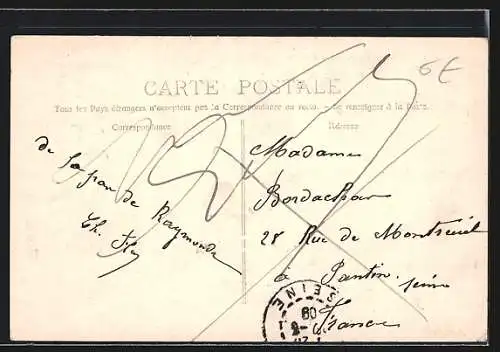 CARTE POSTALE
Tous les Pays étrangers n'acceptent pas la Correspondance au recto. — Se renseigner à la Poste.
Correspondance
Adresse
6€
de la part de
Raymonde
Ch.
Madame
28 Rue de Montreuil
à Pantin
Seine
France
SEINE
09